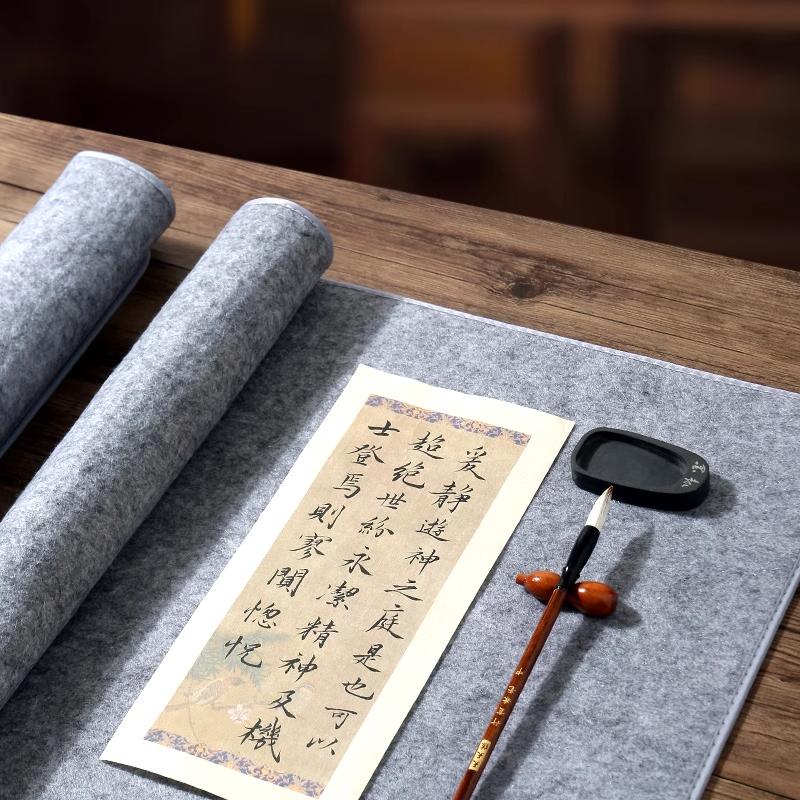 爰靜遊神之庭是也可以
超絕世紛永潔精神及機
士登焉則寥閴惚怳